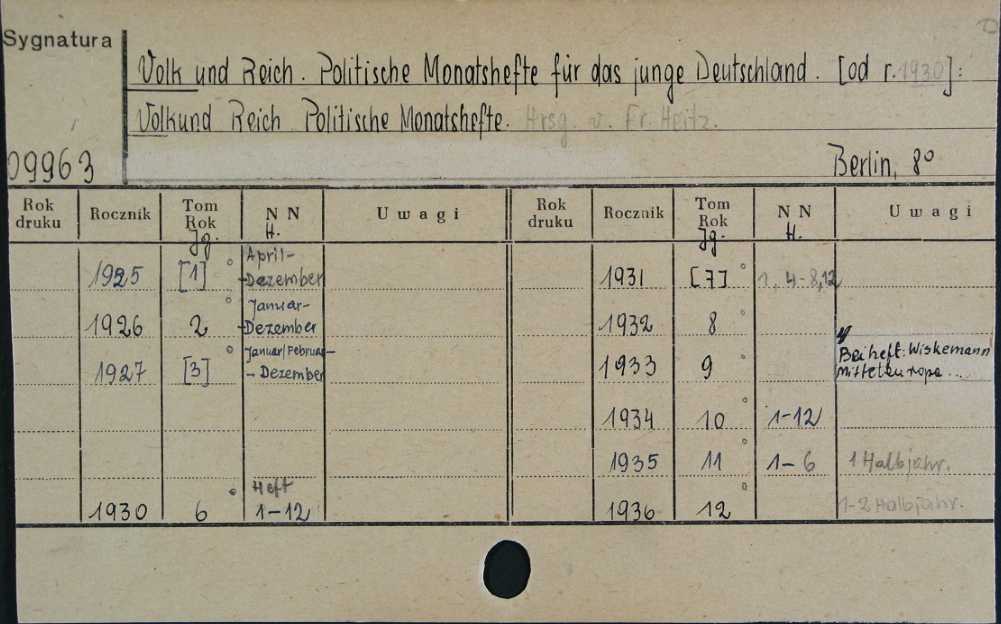 Sygnatura
Volk und Reich. Politische Monatshefte für das junge Deutschland. [od r. 1930]:
Volkund Reich Politische Monatshefte. Hrsg. v. Fr. Heitz.
09963
Berlin, 8°
Rok druku Rocznik Tom Rok Jg. N N H. Uwagi Rok druku Rocznik Tom Rok Jg. N N H. Uwagi
1925 [1]° April- -Dezember 1931 [7]° 1, 4-8,12
1926 2° Januar- -Dezember 1932 8°
1927 [3]° Januar/Februar- - Dezember 1933 9° Beiheft: Wiskemann Mitteleuropa...
1934 10° 1-12
1935 11° 1-6 1 Halbjahr.
1930 6° Heft 1-12 1936 12° 1-2 Halbjahr.